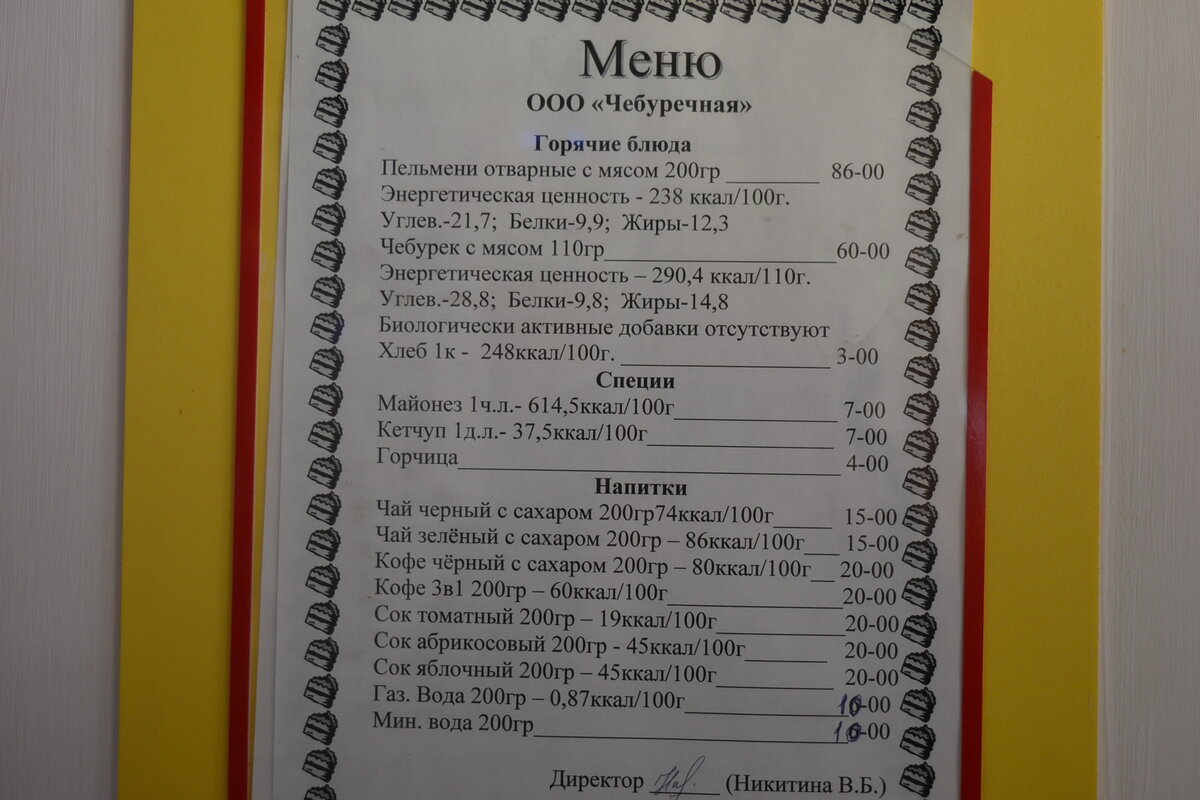 Меню
ООО «Чебуречная»
Горячие блюда
Пельмени отварные с мясом 200гр ________ 86-00
Энергетическая ценность - 238 ккал/100г.
Углев.-21,7; Белки-9,9; Жиры-12,3
Чебурек с мясом 110гр____________________60-00
Энергетическая ценность – 290,4 ккал/110г.
Углев.-28,8; Белки-9,8; Жиры-14,8
Биологически активные добавки отсутствуют
Хлеб 1к - 248ккал/100г. __________________ 3-00
Специи
Майонез 1ч.л.- 614,5ккал/100г______________ 7-00
Кетчуп 1д.л.- 37,5ккал/100г________________ 7-00
Горчица_________________________________ 4-00
Напитки
Чай черный с сахаром 200гр74ккал/100г_____ 15-00
Чай зелёный с сахаром 200гр – 86ккал/100г___ 15-00
Кофе чёрный с сахаром 200гр – 80ккал/100г__ 20-00
Кофе 3в1 200гр – 60ккал/100г_______________20-00
Сок томатный 200гр – 19ккал/100г___________20-00
Сок абрикосовый 200гр - 45ккал/100г_______ 20-00
Сок яблочный 200гр – 45ккал/100г__________ 20-00
Газ. Вода 200гр – 0,87ккал/100г______________10-00
Мин. вода 200гр___________________________10-00
Директор ______ (Никитина В.Б.)